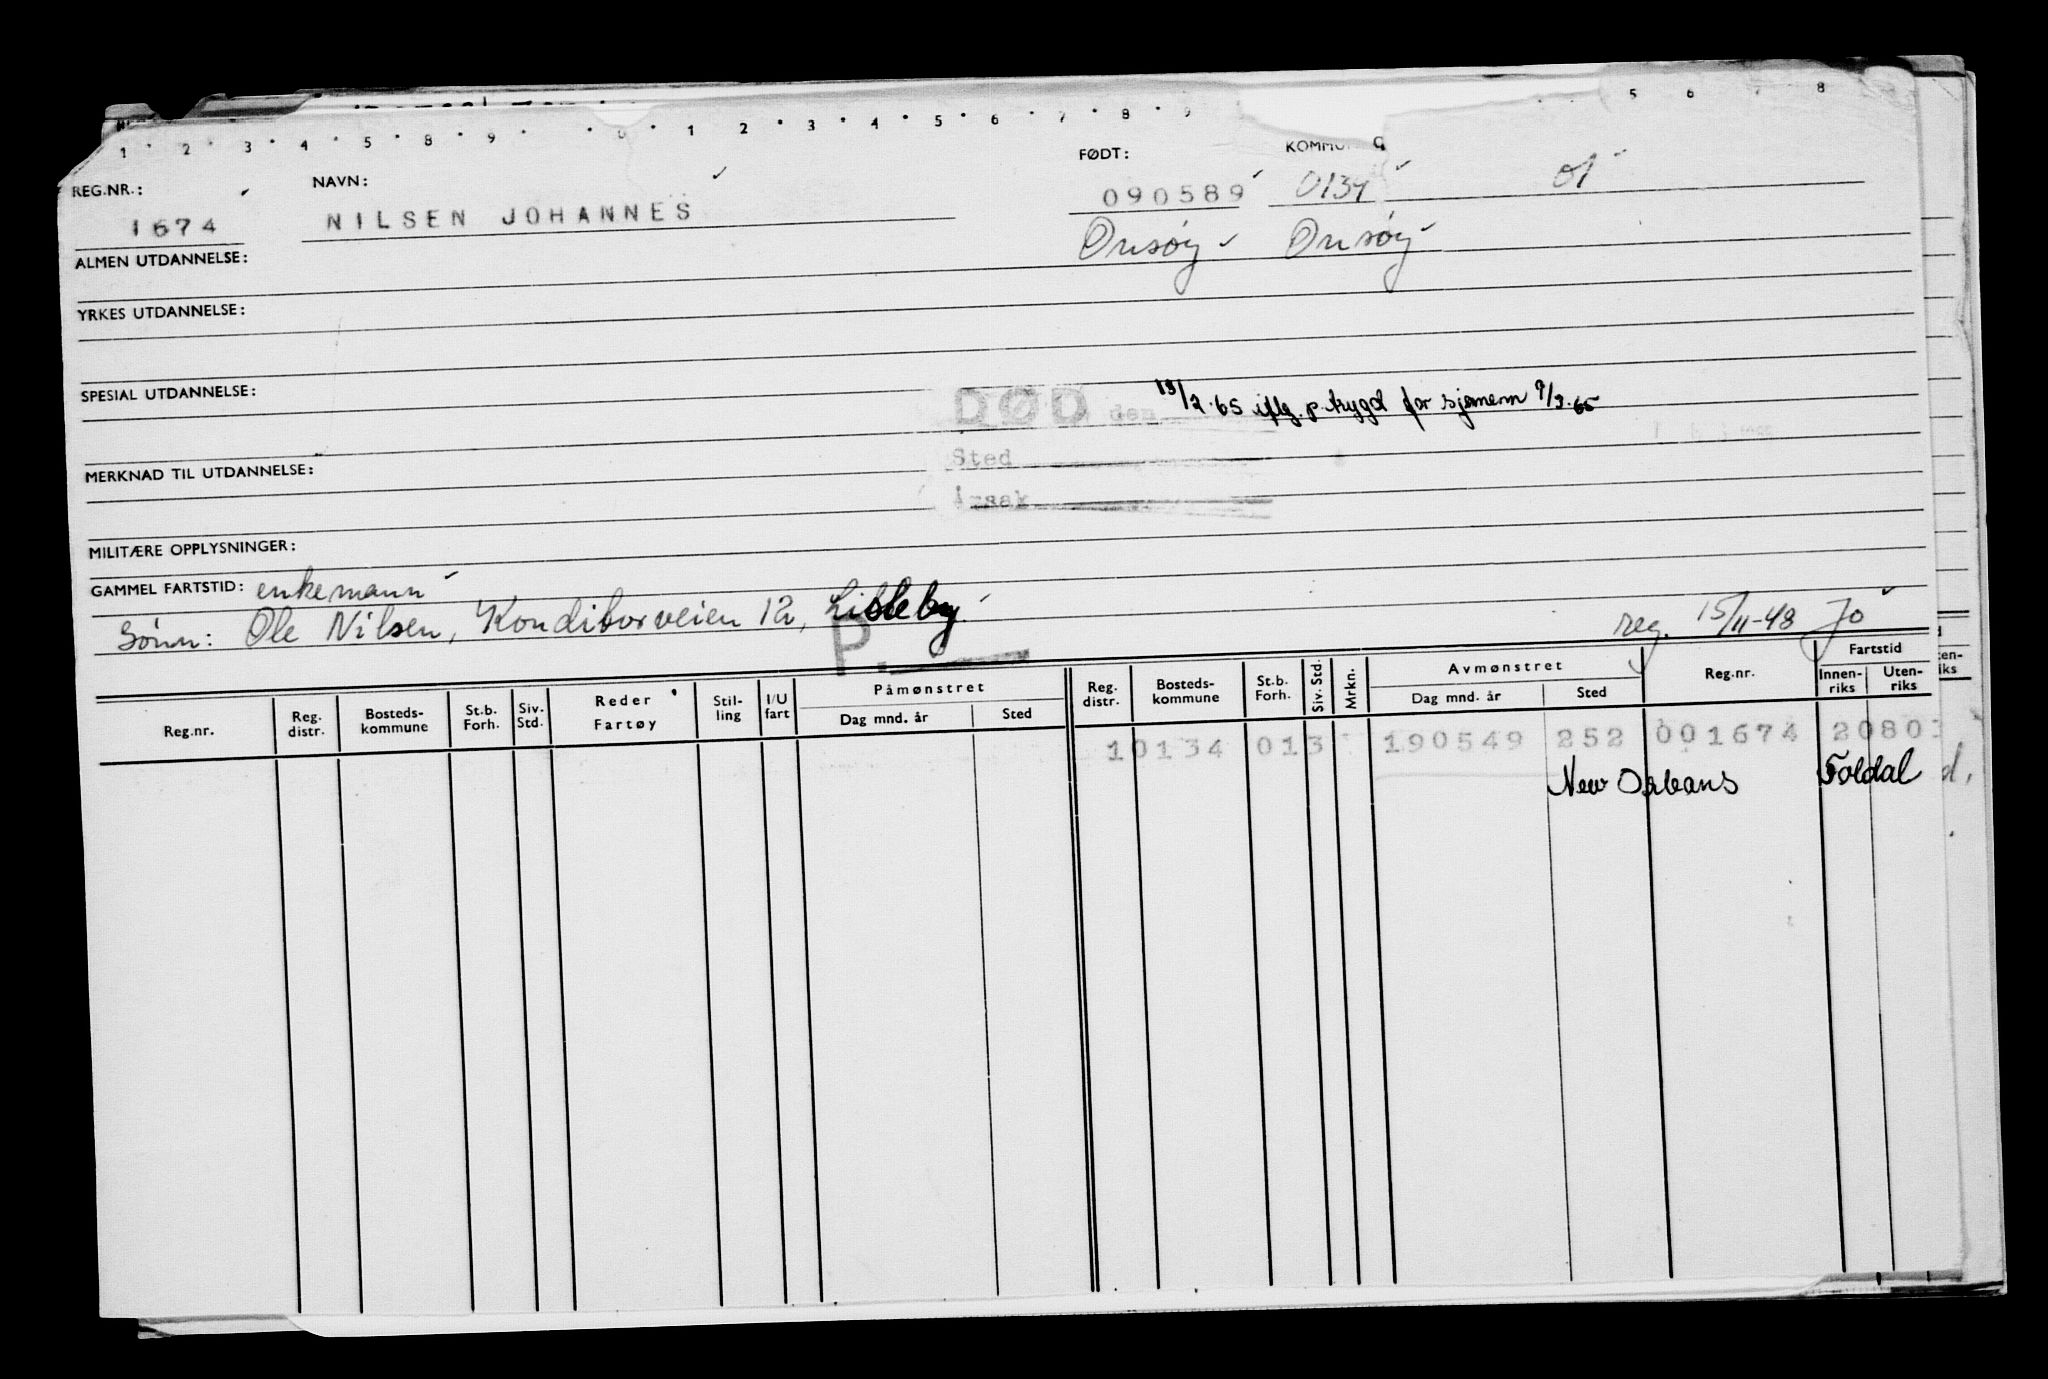 1 2 3 4 5 8 9 0 1 2 3 4 5 6 7 8 9 5 6 7 8
REG.NR.: NAVN: FØDT:
1674 NILSEN JOHANNES 090589 0134 01
Onsøy Onsøy
ALMEN UTDANNELSE:
YRKES UTDANNELSE:
SPESIAL UTDANNELSE:
DØD den 19/2.65 iflg. p.trygd for sjømenn 9/3.65
Sted
MERKNAD TIL UTDANNELSE:
Årsak
MILITÆRE OPPLYSNINGER:
GAMMEL FARTSTID: enkemann
Sønn: Ole Nilsen, Konditorveien 12, Lisleby. reg. 15/11-48 Jo
P.
Reg.nr. Reg. distr. Bosteds-kommune St.b. Forh. Siv. Std. Reder Fartøy Stil-ling I/U fart Påmønstret Dag mnd. år Sted Reg. distr. Bosteds-kommune St.b. Forh. Siv. Std. Mrkn. Avmønstret Dag mnd. år Sted Reg.nr. Fartstid Innen-riks Uten-riks
10134 013 190549 252 001674 2080
New Orleans Foldal